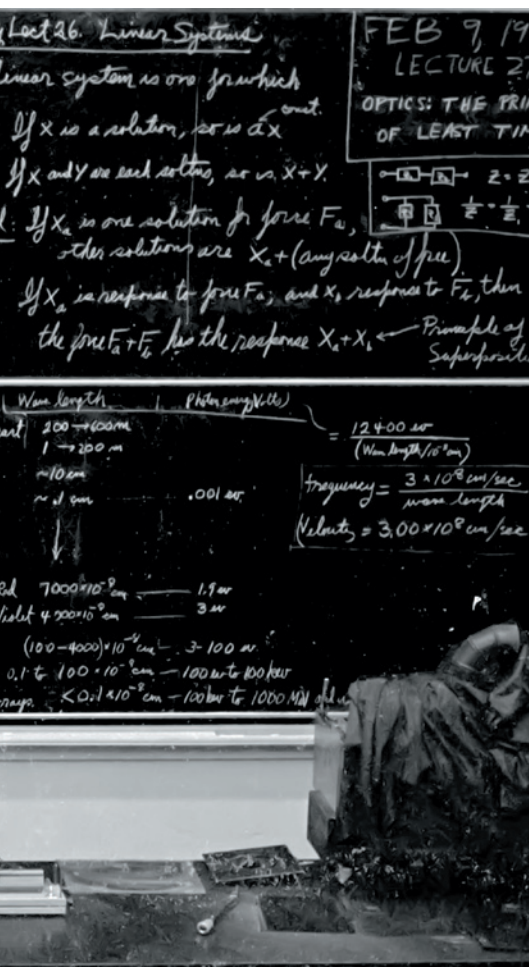 Lect 26. Linear Systems
linear system is one for which
const.
If X is a solution, so is aX
If X and Y are each soltns, so is X+Y.
If Xa is one solution for force Fa,
other solutions are Xa+(any soltn of free)
If Xa is response to force Fa, and Xb response to Fb, then
the force Fa+Fb has the response Xa+Xb ← Principle of
Superposit
FEB 9, 19
LECTURE 2
OPTICS: THE PRI
OF LEAST TIM
Z = Z
1/Z = 1/Z
Wave length | Photon energy (Volts)
200 → 600 m
1 → 200 m
~10 cm
~.1 cm .001 ev.
7000×10⁻⁸ cm — 1.9 ev
Violet 4200×10⁻⁸ cm — 3 ev
(100-4000)×10⁻⁸ cm - 3-100 ev.
0.1 to 100·10⁻⁸ cm — 100 ev to 100 kev
rays. <0.1×10⁻⁸ cm - 100 kev to 1000 Mev and
= 12400 ev / (Wave length/10⁻⁸ cm)
frequency = 3×10⁸ cm/sec / wave length
Velocity = 3.00×10⁸ cm/sec